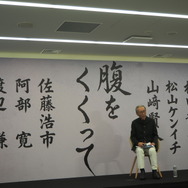 松山ケイイチ
山崎賢
腹を
くくって
佐藤浩市
阿部 寛
渡辺 謙